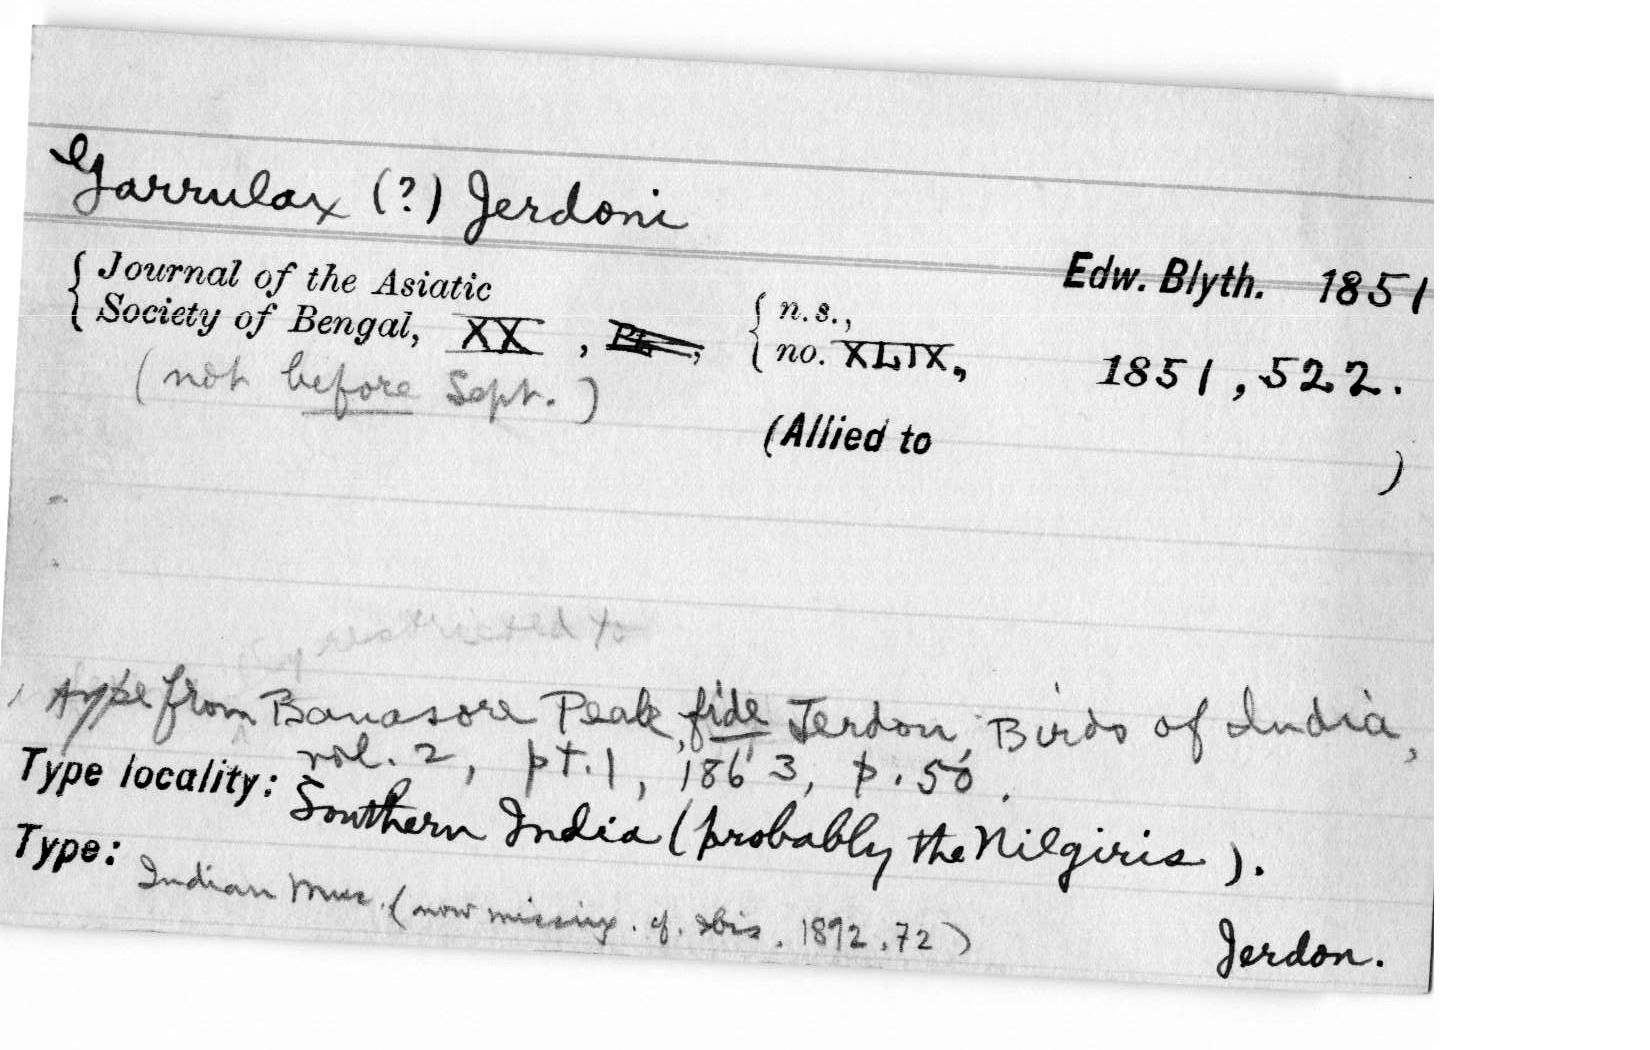 Garrulax (?) Jerdoni
Edw. Blyth. 1851
Journal of the Asiatic
Society of Bengal, XX, Pt., n.s., no. XLIX, 1851, 522.
(not before Sept.)
(Allied to )
restricted to
type from Banasore Peak, fide Jerdon, Birds of India,
vol. 2, pt. 1, 1863, p. 50.
Type locality: Southern India (probably the Nilgiris).
Type: Indian Mus. (now missing. cf. Ibis, 1892, 72)
Jerdon.